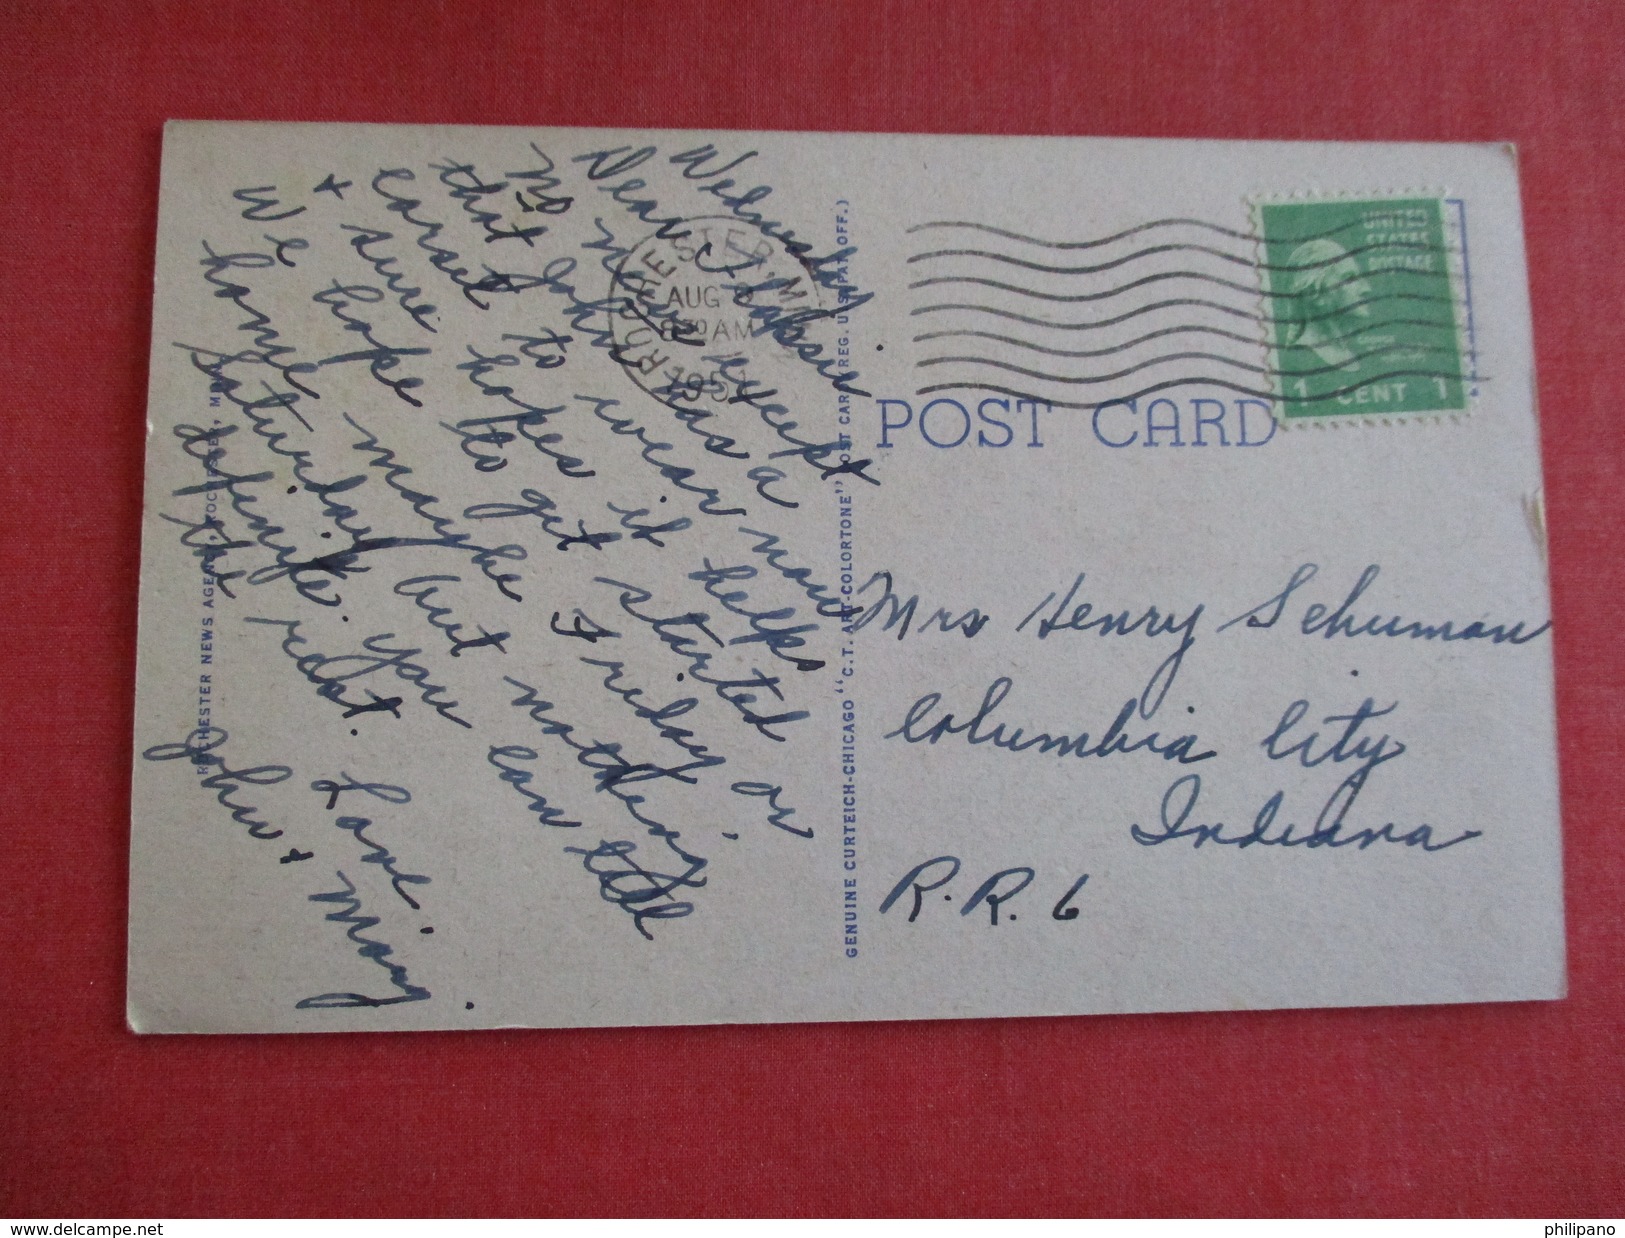 Wednesday
Dear Folks
No news except
that John has a
corset to wear now
& sure hopes it helps
We hope to get started
home maybe Friday or
Saturday but nothing
definite. You can tell
the rest. Love.
John & Mary.
ROCHESTER, MINN.
AUG 8
8 30 AM
1951
ROCHESTER NEWS AGENCY, ROCHESTER, MINN.
GENUINE CURTEICH-CHICAGO "C.T. ART-COLORTONE" POST CARD (REG. U.S. PAT. OFF.)
POST CARD
UNITED
STATES
POSTAGE
1 CENT 1
Mrs Henry Schuman
Columbia City
Indiana
R.R. 6
www.delcampe.net
philipano